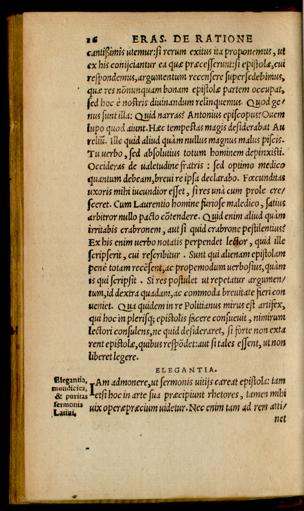 26 ERAS. DE RATIONE
cantissimis utemur: si rerum exitus ita proponemus, ut
ex his conijciantur ea quæ præcesserunt: si epistolæ, cui
respondemus, argumentum recensere supersedebimus,
quæ res nõnunquam bonam epistolæ partem occupat,
sed hoc è nostris diuinandum relinquemus. Quod ge-
nus sunt illa: Quid narras? Antonius episcopus? Ouem
lupo quod aiunt. Hæc tempestas magis desiderabat Au
relium. Ille quid aliud quàm nullus magnus malus piscis.
Tu uerbo, sed absolutus totum hominem depinxisti.
Occideras de ualetudine fratris: sed optimo medico
quantum debeam, breui re ipsa declarabo. Fœcunditas
uxoris mihi iucundior esset, si res unà cum prole cre-
sceret. Cum Laurentio homine furiose maledico, satius
arbitror nullo pacto cõtendere. Quid enim aliud quàm
irritabis crabronem, aut si quid crabrone pestilentius?
Ex his enim uerbo notatis perpendet lector, quid ille
scripserit, cui rescribitur. Sunt qui alienam epistolam
penè totam recẽsent, ac propemodum uerbosius, quàm
is qui scripsit. Si res postulet ut repetatur argumen-
tum, id dextra quadam, ac commoda breuitate fieri con
ueniet. Qua quidem in re Politianus mirus est artifex,
qui hoc in plerisq; epistolis facere consueuit, nimirum
lectori consulens, ne quid desideraret, si forte non exta
rent epistolæ, quibus respõdet: aut si tales essent, ut non
liberet legere.
ELEGANTIA.
Elegantia,
mundicies,
& puritas
sermonis
Latini,
IAm admonere, ut sermonis uitijs careat epistola: tam
etsi hoc in arte sua præcipiunt rhetores, tamen mihi
uix operæpræcium uidetur. Nec enim tam ad rem atti-
net